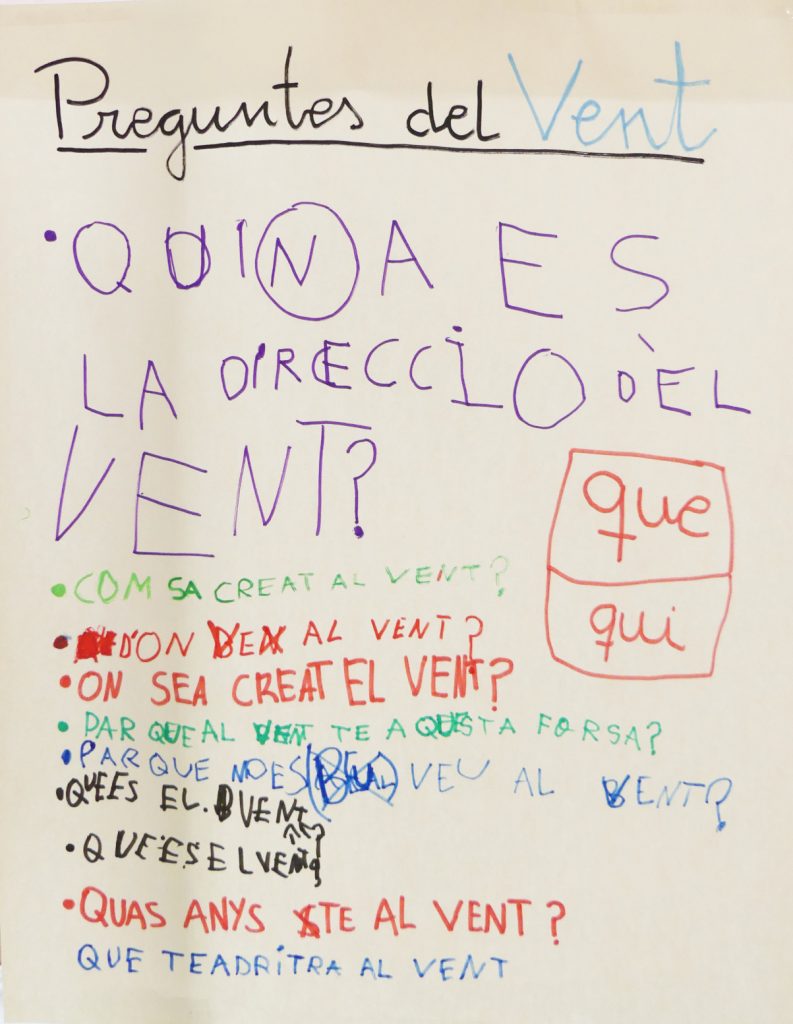 Preguntes del Vent
• QUINA ES
LA DIRECCIO DÈL
VENT?
que
qui
• COM SA CREAT AL VENT?
• D'ON VEN AL VENT?
• ON SEA CREAT EL VENT?
• PAR QUE AL VENT TE AQUESTA FORSA?
• PAR QUE NO ES VEU AL VENT?
• QUE ES EL VENT?
• QUE ES EL VENT?
• QUAS ANYS TE AL VENT?
QUE TEADRITRA AL VENT